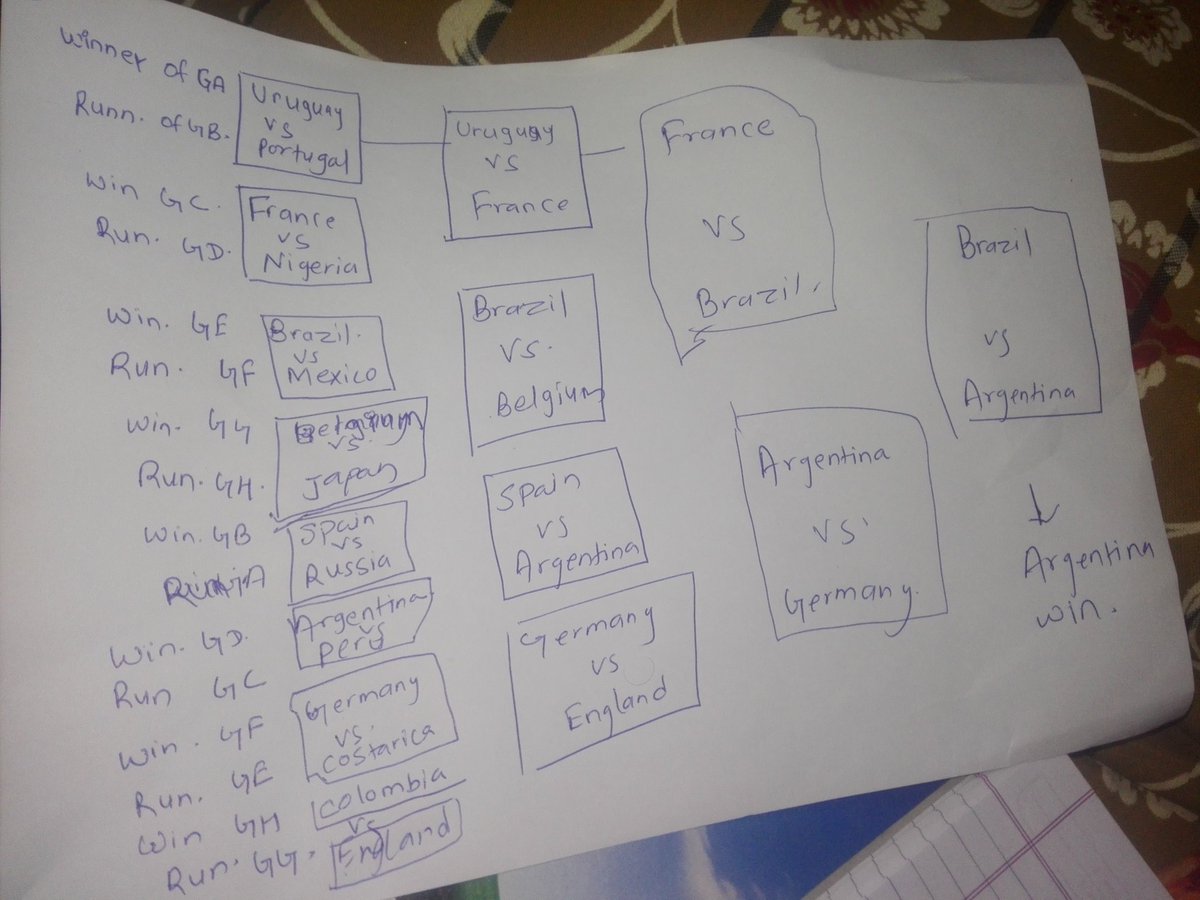 Winner of GA
Runn. of GB.
Uruguay
vs
Portugal
Win GC.
Run. GD.
France
vs
Nigeria
Win. GE
Run. GF
Brazil.
vs
Mexico
Win. GG
Run. GH.
Belgium
vs.
Japan
Win. GB
GA
Spain
vs
Russia
Win. GD.
Run GC
Argentina
vs
Peru
Win. GF
Run. GE
Germany
vs.
Costarica
Win GH
Run. GG.
Colombia
vs
England
Uruguay
vs
France
Brazil
vs.
Belgium
Spain
vs
Argentina
Germany
vs
England
France
vs
Brazil.
Argentina
vs
Germany.
Brazil
vs
Argentina
Argentina
win.